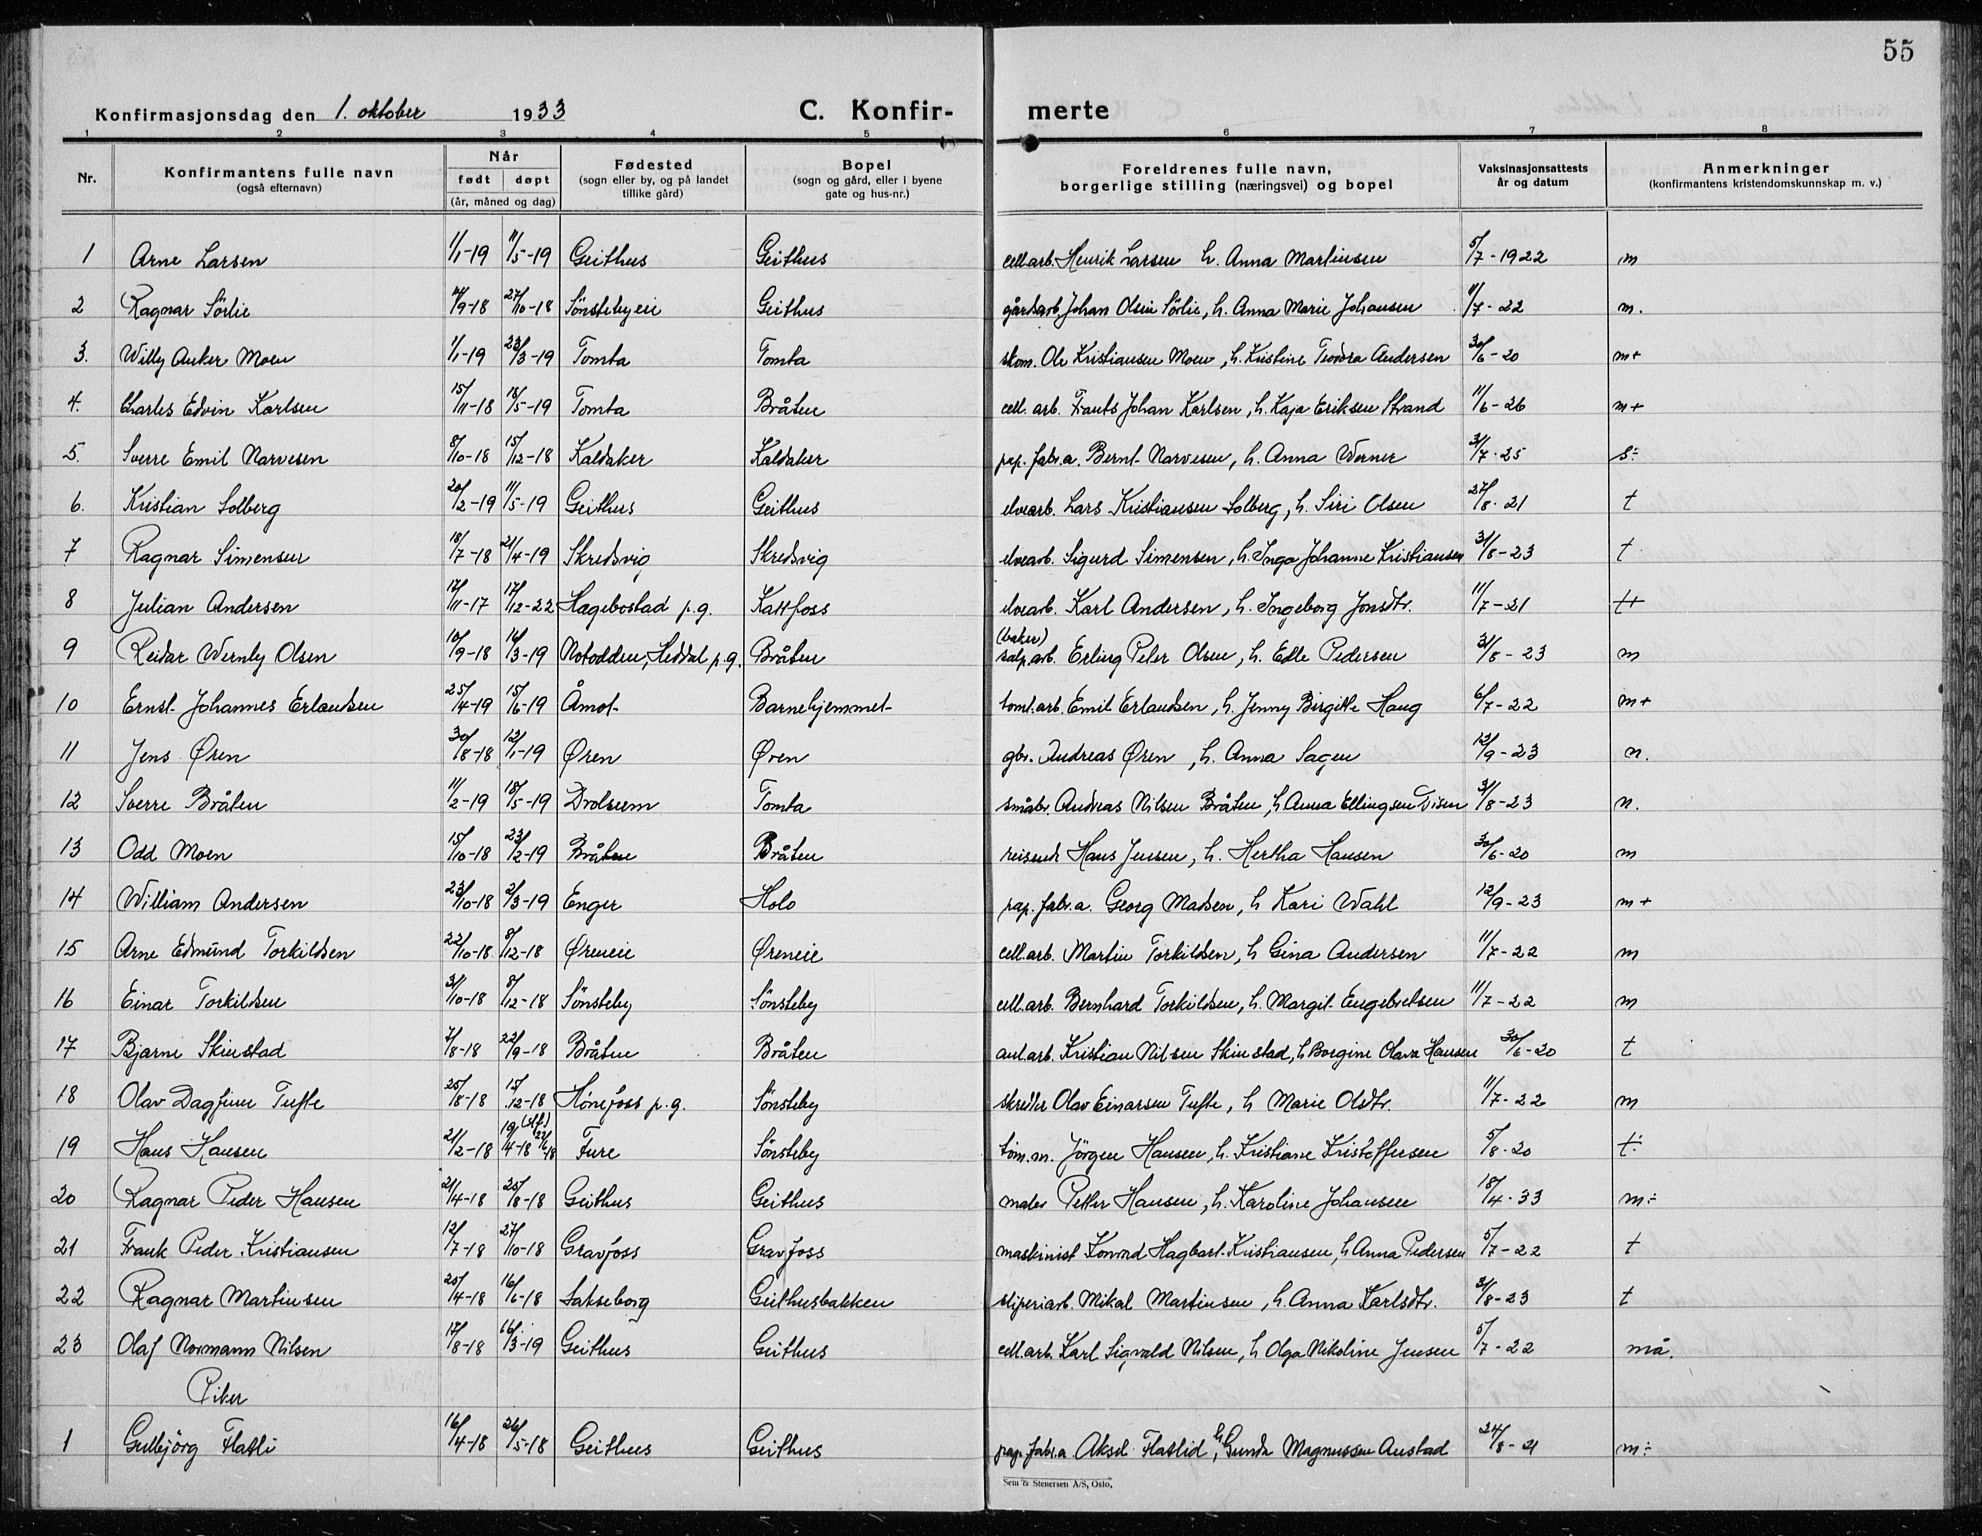 55
Konfirmasjonsdag den 1. oktober 1933 C. Konfir- merte
1 2 3 4 5 6 7 8
Nr. Konfirmantens fulle navn (også efternavn) Når født døpt (år, måned og dag) Fødested (sogn eller by, og på landet tillike gård) Bopel (sogn og gård, eller i byene gate og hus-nr.) Foreldrenes fulle navn, borgerlige stilling (næringsvei) og bopel Vaksinasjonsattests år og datum Anmerkninger (konfirmantens kristendomskunnskap m. v.)
1 Arne Larsen 1/1-19 11/5-19 Geithus Geithus cell.arb. Henrik Larsen h. Anna Martinsen 5/7-1922 m
2 Ragnar Sörlie /9-18 27/10-18 Sönstebyeie Geithus gårdsarb. Johan Olsen Sörlie, h. Anna Marie Johansen 11/7-22 m.
3. Willy Anker Moen 1/1-19 23/3-19 Tomta Tomta skom. Ole Kristiansen Moen, h. Kristine Teodora Andersen 30/6-20 m+
4. Charles Edvin Karlsen 15/11-18 18/5-19 Tomta Bråten cell. arb. Frants Johan Karlsen, h. Kaja Eriksen Strand 11/6-26 m+
5. Sverre Emil Narvesen 8/10-18 15/12-18 Kaldaker Kaldaker pap. fabr.a. Bernt Narvesen, h. Anna Werner 3/7-25 s÷
6. Kristian Solberg 20/2-19 11/5-19 Geithus Geithus elvearb. Lars Kristiansen Solberg, h. Siri Olsen 27/8-21 t
7 Ragnar Simensen 18/7-18 21/4-19 Skredsvig Skredsvig elvearb. Sigurd Simensen, h. Inga Johanne Kristiansen 31/8-23 t
8 Julian Andersen 17/11-17 17/12-22 Hagebostad p.g. Kattfoss elvearb. Karl Andersen, h. Ingeborg Jonsdtr. 11/7-21 t+
9 Reidar Wernly Olsen 10/9-18 16/3-19 Notodden, Heddal p.g. Bråten (baker) salp.arb. Erling Peter Olsen, h. Edle Pedersen 31/8-23 m
10 Ernst Johannes Erlandsen 25/4-19 15/6-19 Åmot Barnehjemmet tomt.arb. Emil Erlandsen, h. Jenny Birgitte Haug 6/7-22 m+
11 Jens Øren 30/8-18 12/1-19 Øren Øren gbr. Andreas Øren, h. Anna Sagen 12/9-23 n.
12 Sverre Bråten 11/2-19 18/5-19 Drolsum Tomta småbr. Andreas Nilsen Bråten, h Anna Ellingsen Disen 31/8-23 n.
13 Odd Moen 15/10-18 23/2-19 Bråten Bråten reisende Hans Jensen, h. Hertha Hansen 30/6-20 m
14 William Andersen 23/10-18 2/3-19 Enger Holo pap. fabr.a. Georg Madsen, h Kari Wahl 12/9-23 m+
15 Arne Edmund Torkildsen 22/10-18 8/12-18 Øreneie Øreneie cell.arb. Martin Torkildsen, h Gina Andersen 11/7-22 m
16 Einar Torkildsen 31/10-18 8/12-18 Sönsteby Sönsteby cell.arb. Bernhard Torkildsen, h. Margit Engebretsen 11/7-22 m
17 Bjarne Skinstad 7/8-18 22/9-18 Bråten Bråten anl.arb. Kristian Nilsen Skinstad, h Borgine Olava Hansen 30/6-20 t
18 Olav Dagfinn Tufte 25/8-18 15/12-18 Hönefoss p.g. Sönsteby skredder Olav Einarsen Tufte, h Marie Olsdtr. 11/7-22 m
19 Hans Hansen 21/2-18 19/4-18 (stf.) 22/-18 Fure Sönsteby töm.m. Jörgen Hansen, h. Kristiane Kristoffersen 5/8-20 t÷
20 Ragnar Peder Hansen 21/4-18 25/8-18 Geithus Geithus maler Petter Hansen, h. Karoline Johansen 18/4-33 m÷
21 Frank Peder Kristiansen 12/7-18 27/10-18 Gravfoss Gravfoss maskinist Konrad Hagbart Kristiansen, h Anna Pedersen 5/7-22 t
22 Ragnar Martinsen 25/4-18 16/6-18 Sakseborg Geithusbakken sliperiarb. Mikal Martinsen, h. Anna Karlsdtr. 31/8-23 t
23 Olaf Normann Nilsen 17/8-18 16/3-19 Geithus Geithus cell.arb. Karl Sigvald Nilsen, h Olga Nikoline Jensen 5/7-22 må.
Piker
1 Gulbjörg Flatli 16/4-18 26/5-18 Geithus Geithus pap. fabr.a Aksel Flatlid h Gunda Magnussen Austad 24/8-21 m÷
Sem & Stenersen A/S, Oslo.